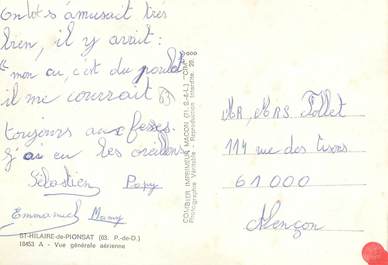 on s'amusait très
bien, il y avait :
"mon cu, c'est du poulet
il me courait
toujours au fesses.
J'ai eu les oreillons.
Sébastien Papy
Emmanuel Mamy
ST-HILAIRE-de-PIONSAT (63. P.-de-D.)
18453 A - Vue générale aérienne
COMBIER IMPRIMEUR MACON (71. S.-&-L.) "CIM"
Photographie Véritable - Reproduction Interdite.
MR, MRS Follet
114 rue des tisons
61000
Alençon